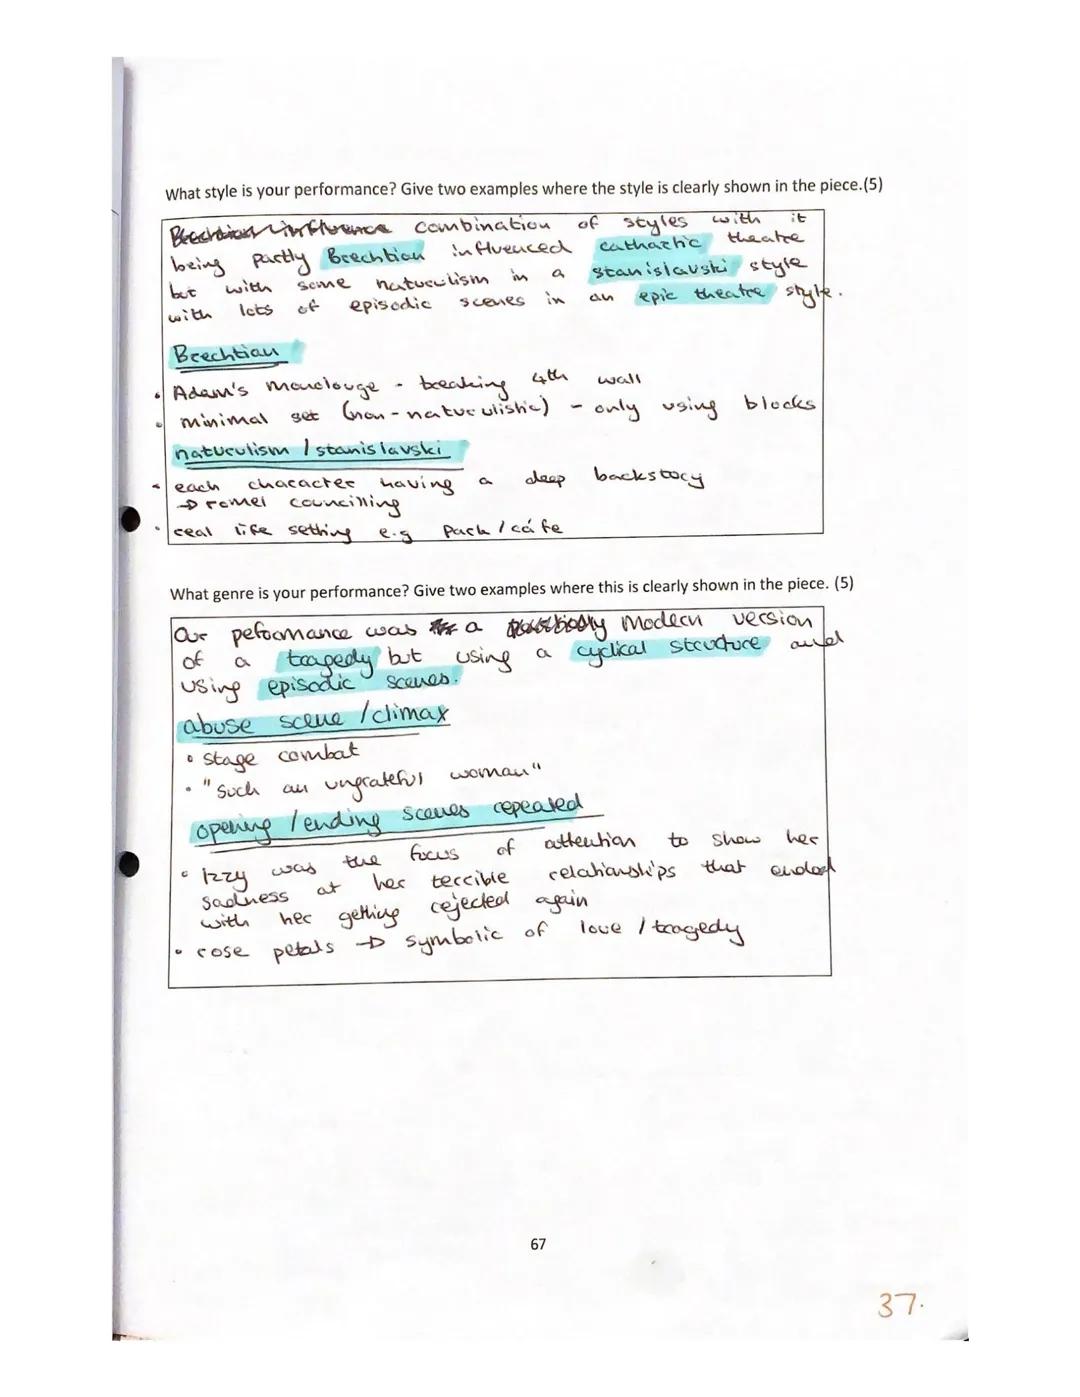 What style is your performance? Give two examples where the style is clearly shown in the piece.(5)
Brechtian influence combination of styles with it
being partly Brechtian influenced cathartic theatre
but with some naturulism in a stanislavski style
with lots of episodic scenes in an epic theatre style.
Brechtian
• Adam's monolouge - breaking 4th wall
• minimal set (non-naturulistic) - only using blocks
naturulism / stanislavski
• each character having a deep backstory
→ romel councilling
• real life setting e.g park / cáfe
What genre is your performance? Give two examples where this is clearly shown in the piece. (5)
Our peformance was a Modern version
of a tragedy but using a cyclical structure and
using episodic scenes.
abuse scene / climax
• stage combat
• "Such an ungrateful woman"
opening / ending scenes repeated
• Izzy was the focus of attention to show her
sadness at her terrible relationships that ended
with her getting rejected again
• rose petals → symbolic of love / tragedy
67
37.